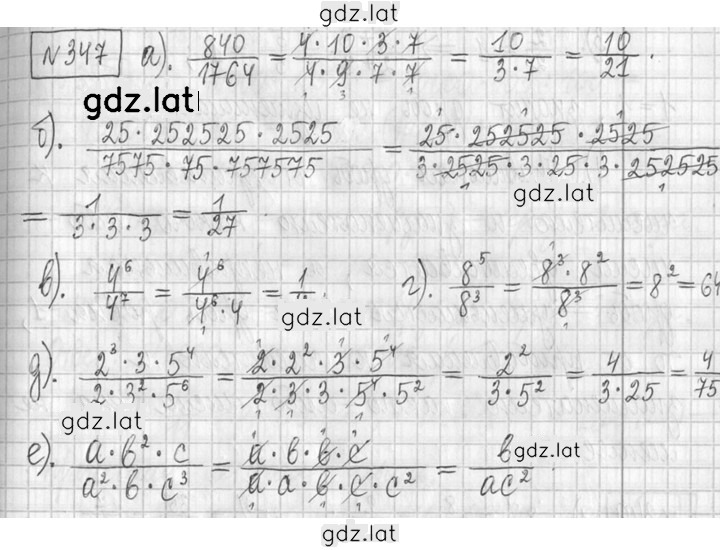 gdz.lat
№347 а). 840/1764 = 4·10·3·7/4·9·7·7 = 10/3·7 = 10/21.
gdz.lat
б). 25·252525·2525/7575·75·757575 = 25·252525·2525/3·2525·3·25·3·252525
gdz.lat
= 1/3·3·3 = 1/27.
в). 4⁶/4⁷ = 4⁶/4⁶·4 = 1/ г). 8⁵/8³ = 8³·8²/8³ = 8² = 64
gdz.lat
д). 2³·3·5⁴/2·3²·5⁶ = 2·2²·3·5⁴/2·3·3·5⁴·5² = 2²/3·5² = 4/3·25 = 4/75
gdz.lat
е). a·b²·c/a²·b·c³ = a·b·b·c/a·a·b·c·c² = b/ac²
gdz.lat
gdz.lat